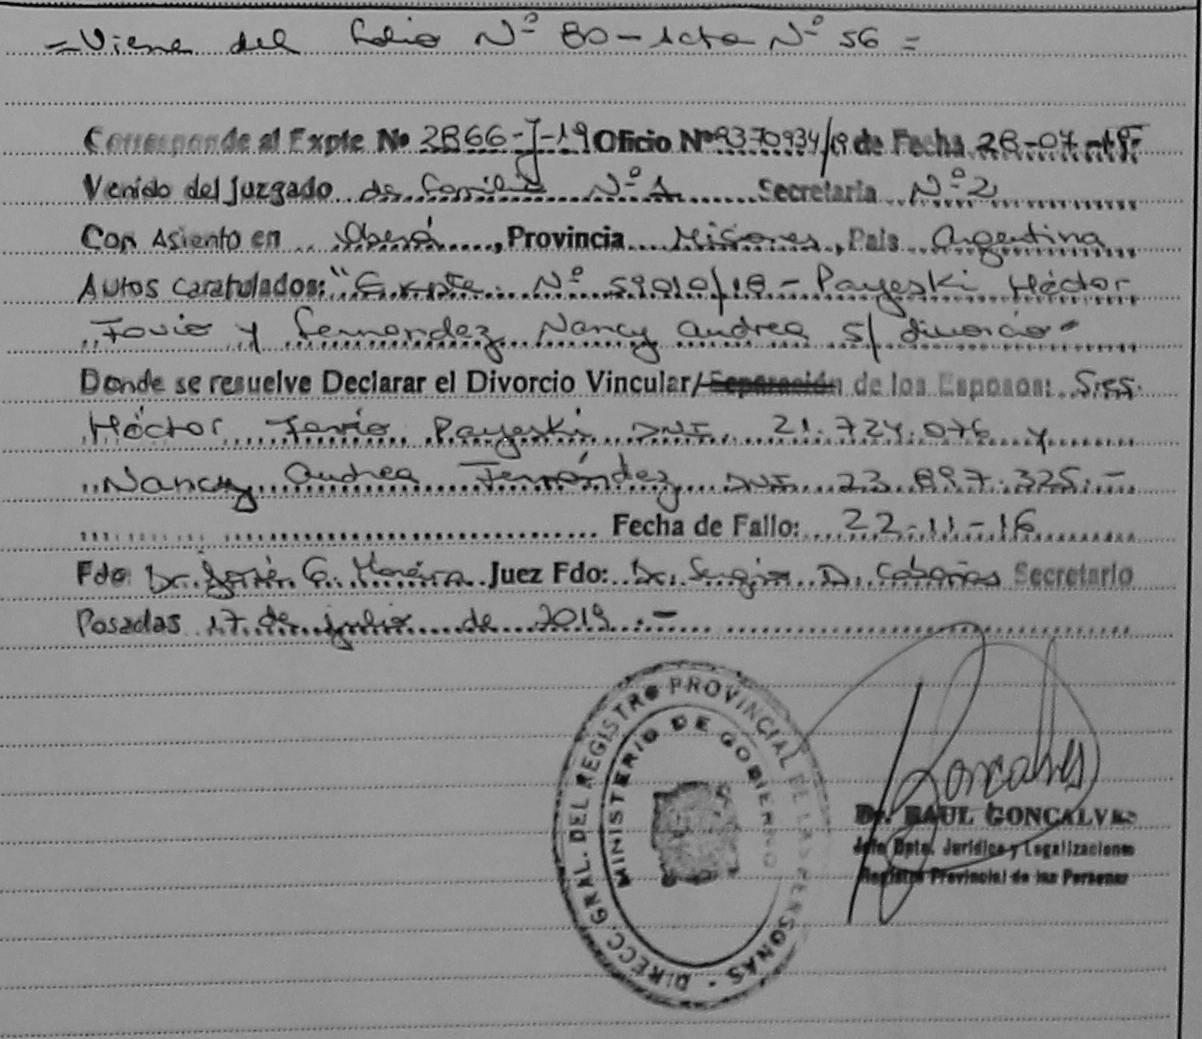 =Viene del Folio Nº 80-Acta Nº 56=
Corresponde al Expte Nº 2866-J-19 Oficio Nº 9370934/19 de Fecha 28-07-
Venido del Juzgado de Familia Nº 1 Secretaría Nº 2
Con Asiento en Oberá, Provincia Misiones, País Argentina
Autos caratulados: "Expte. Nº 59010/18 - Payeski Héctor
Favio y Fernandez Nancy Andrea s/ divorcio"
Donde se resuelve Declarar el Divorcio Vincular/Separación de los Esposos: Sres.
Héctor Favio Payeski DNI. 21.724.076 y
Nancy Andrea Fernández DNI. 23.897.325.-
Fecha de Fallo: 22-11-16
Fdo: Dr. José G. Moreira Juez Fdo: Dr. Sergio D. Cabañas Secretario
Posadas 17 de julio de 2019.-
DIRECC. GRAL. DEL REGISTRO PROVINCIAL DE LAS PERSONAS
MINISTERIO DE GOBIERNO
Dr. RAUL GONCALVES
Jefe Dpto. Jurídico y Legalizaciones
Registro Provincial de las Personas